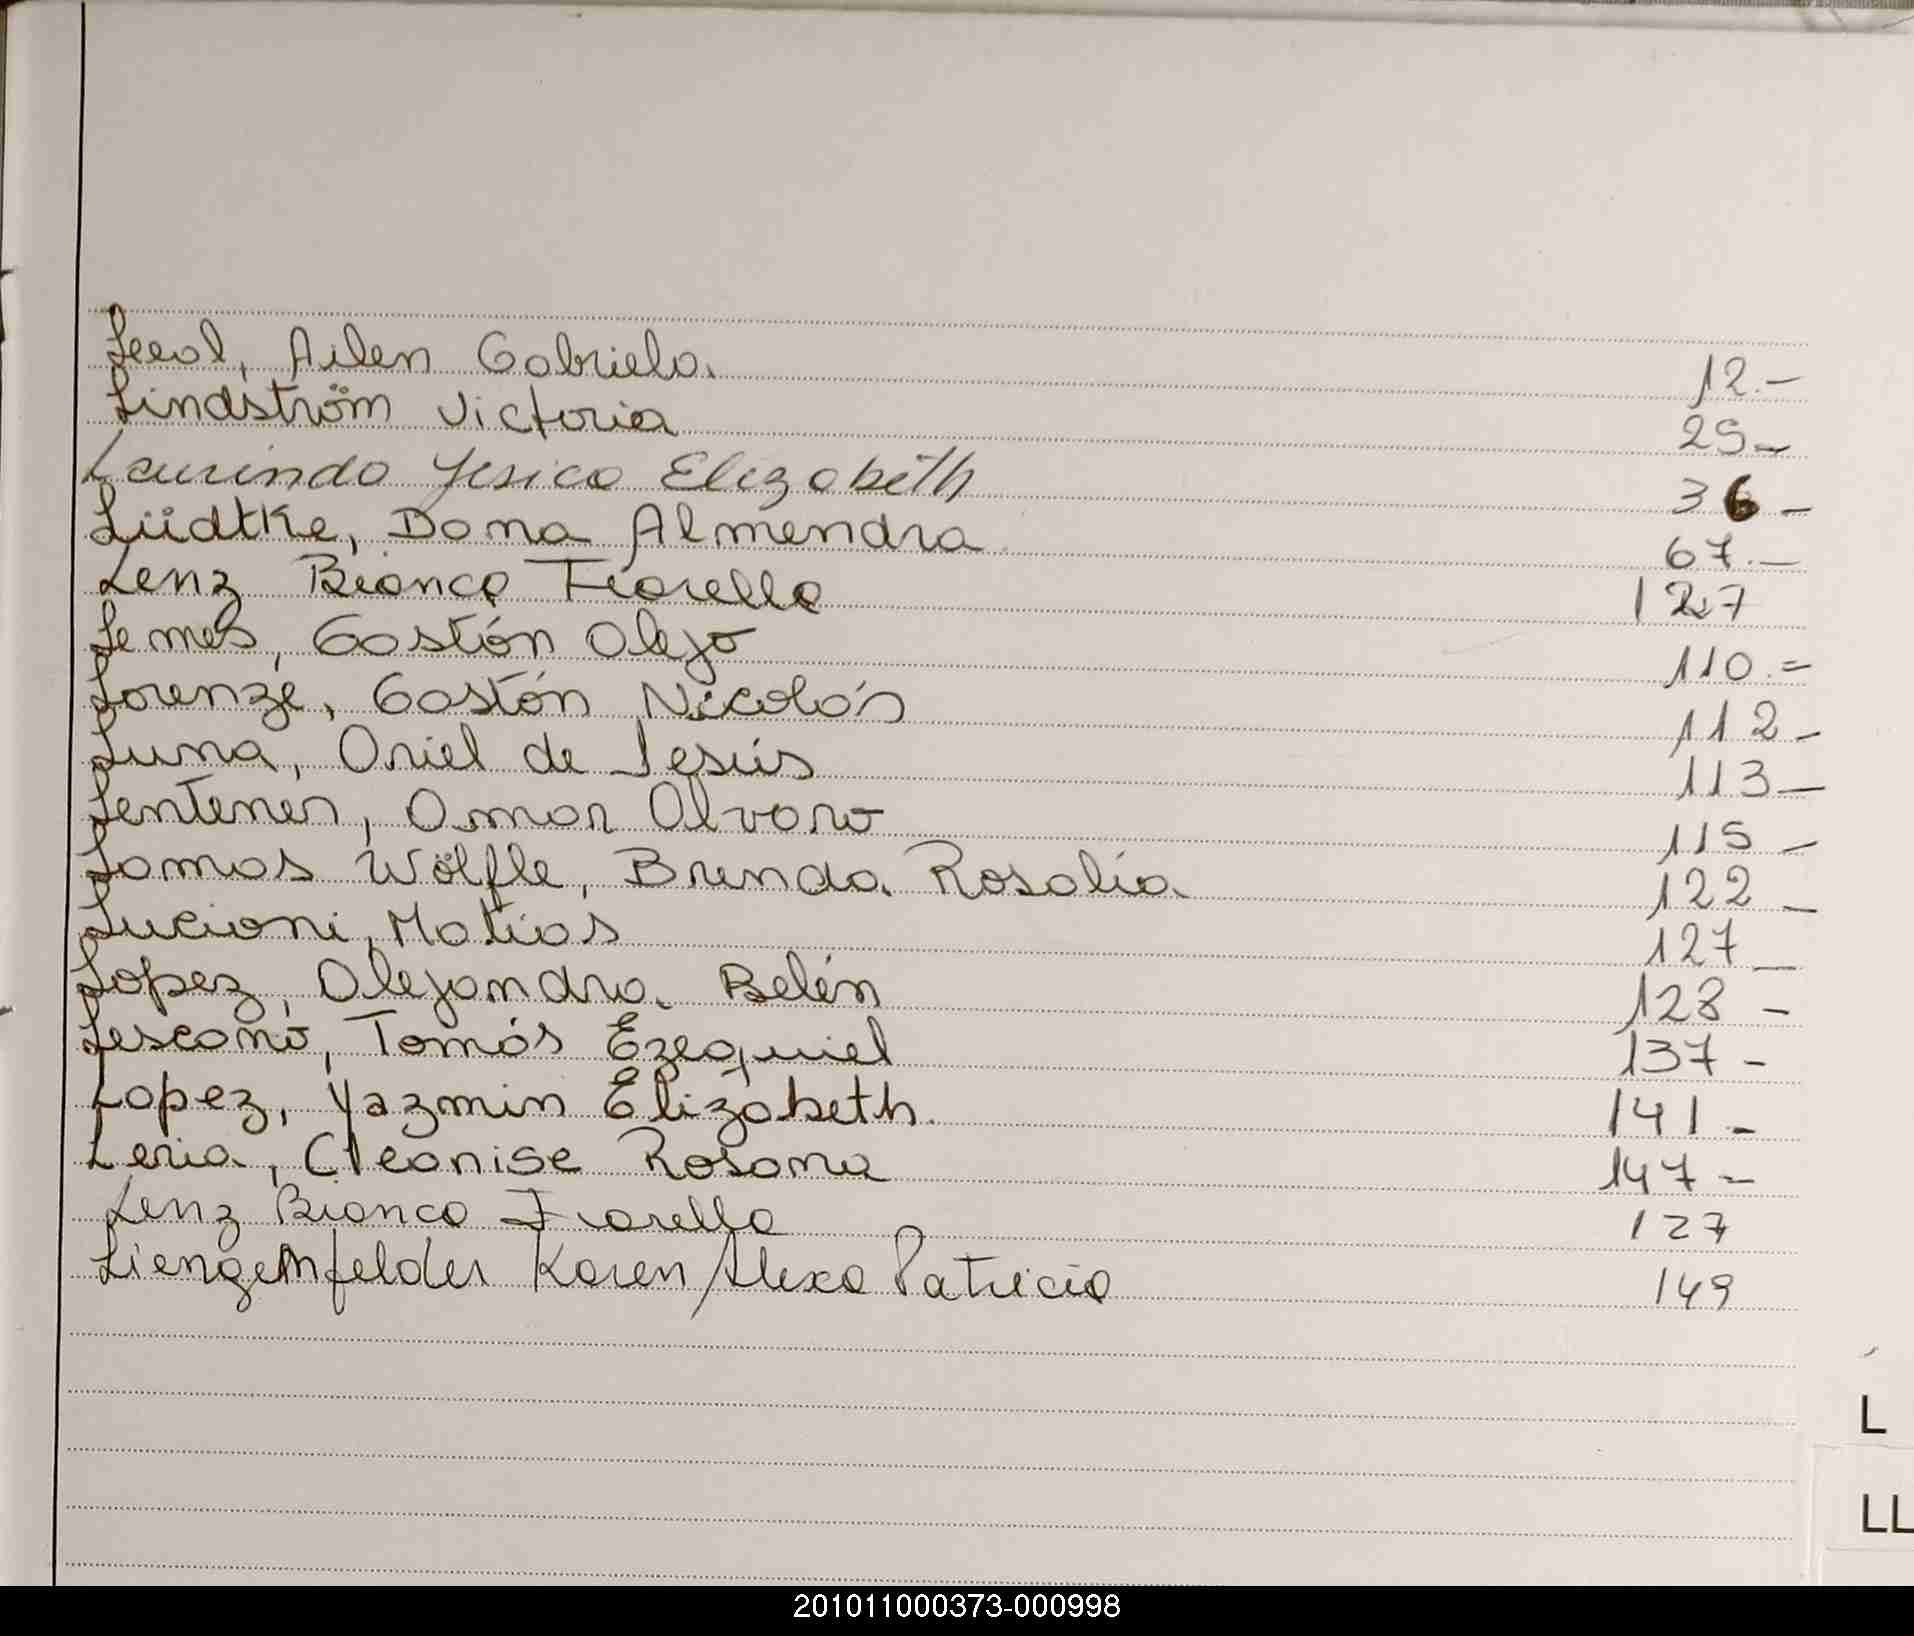 Leal, Ailen Gabriela. 12.-
Lindström Victoria 29-
Laurindo Yesica Elizabeth 36-
Lüdtke, Dana Almendra 67.-
Lenz Bianca Fiorella 127
Lemes, Gastón Alejo 110.=
Lorenze, Gastón Nicolás 112-
Luna, Oriel de Jesús 113-
Lentener, Omar Alvaro 115-
Lamas Wölfle, Brenda Rosalía 122-
Lucioni, Matias 127-
Lopez, Alejandra Belén 128-
Lescano, Tomás Ezequiel 137-
Lopez, Yazmin Elizabeth. 141-
Leria, Cleonise Rosana 147-
Lenz Bianca Fiorella 127
Liengenfelder Karen Alexa Patricia 149
L
LL
201011000373-000998